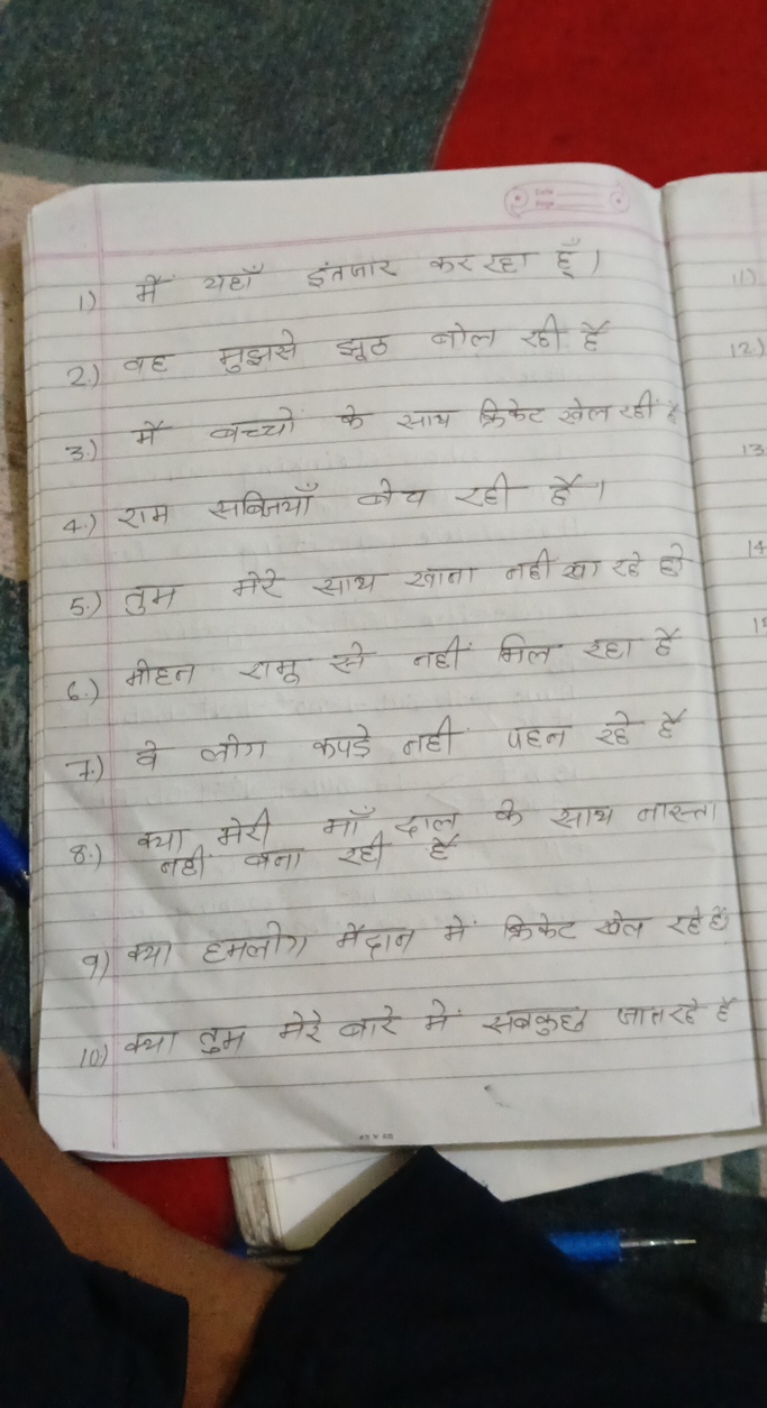 Date
Page
1) मैं यहाँ इंतजार कर रहा हूँ।
2.) वह मुझसे झूठ बोल रही है
3.) मैं बच्चों के साथ क्रिकेट खेल रहीं हूँ
4.) राम सब्जियाँ बेच रही है।
5.) तुम मेरे साथ खाना नहीं खा रहे हो
6.) मोहन रामू से नहीं मिल रहा है
7.) वे लोग कपड़े नही पहन रहे है
8.) क्या मेरी माँ दाल के साथ नास्ता
नहीं बना रही है
9) क्या हमलोग मैदान में क्रिकेट खेल रहे हैं
10) क्या तुम मेरे बारे में सबकुछ जान रहे है
11)
12.)
13
14